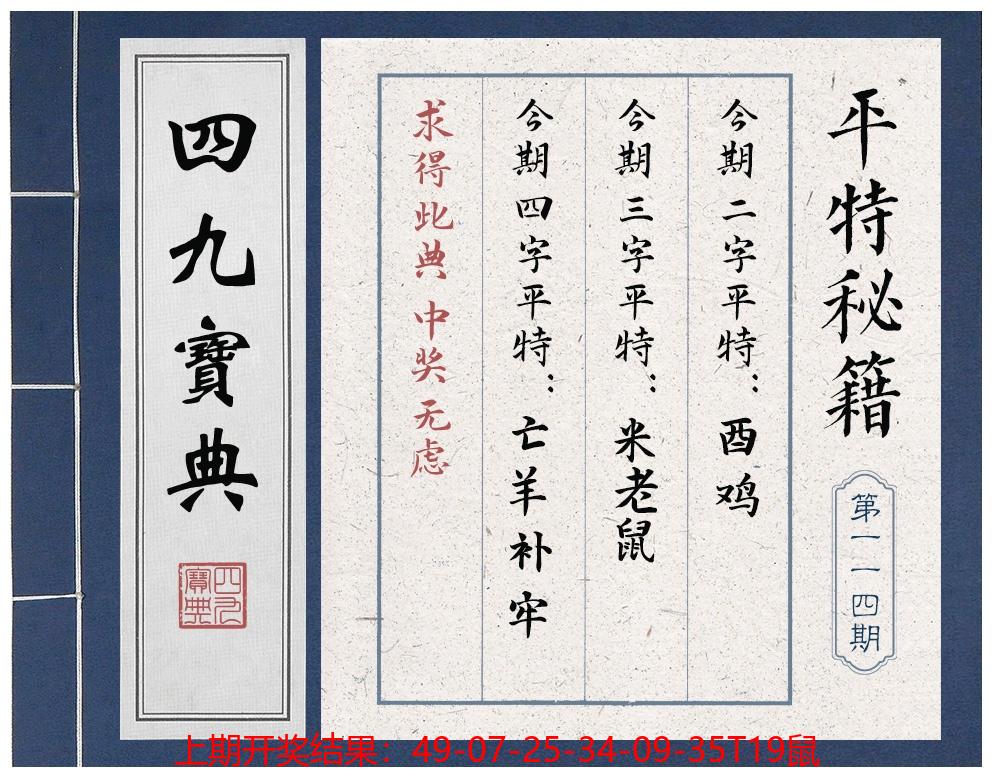 平特秘籍
第一一四期
今期二字平特：酉鸡
今期三字平特：米老鼠
今期四字平特：亡羊补牢
求得此典 中奖无虑
四九寳典
四九寳典
上期开奖结果：49-07-25-34-09-35T19鼠